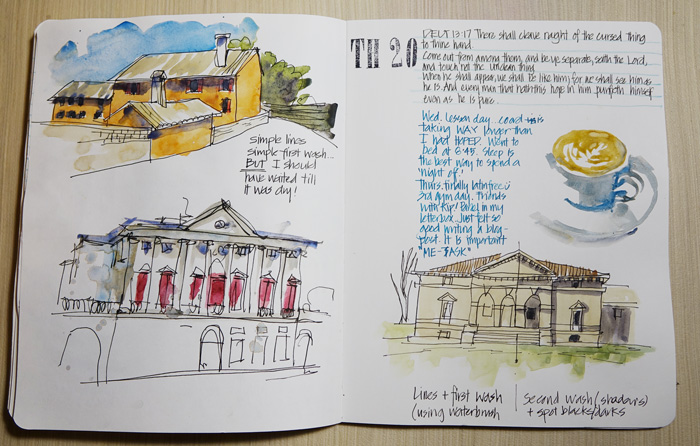 simple lines
simple first wash...
BUT I should
have waited till
it was dry!
TH 20
DEUT 13:17 There shall cleave naught of the cursed thing
to thine hand.
Come out from among them, and be ye separate, saith the Lord,
and touch not the unclean thing.
When he shall appear, we shall be like him; for we shall see him as
he is. And every man that hath this hope in him purifieth himself
even as he is pure.
Wed. Lesson day... coad is
taking WAY longer than
I had HOPED. Went to
bed at 6:45. Sleep is
the best way to spend a
'night of.'
Thurs. finally
3rd gym day. Friends
with Kip! in my
letterbox. Just felt so
good writing a blog-
post. It is important
"ME-TASK"
Lines + first wash
(using waterbrush
Second wash (shadows)
+ spot blacks/darks